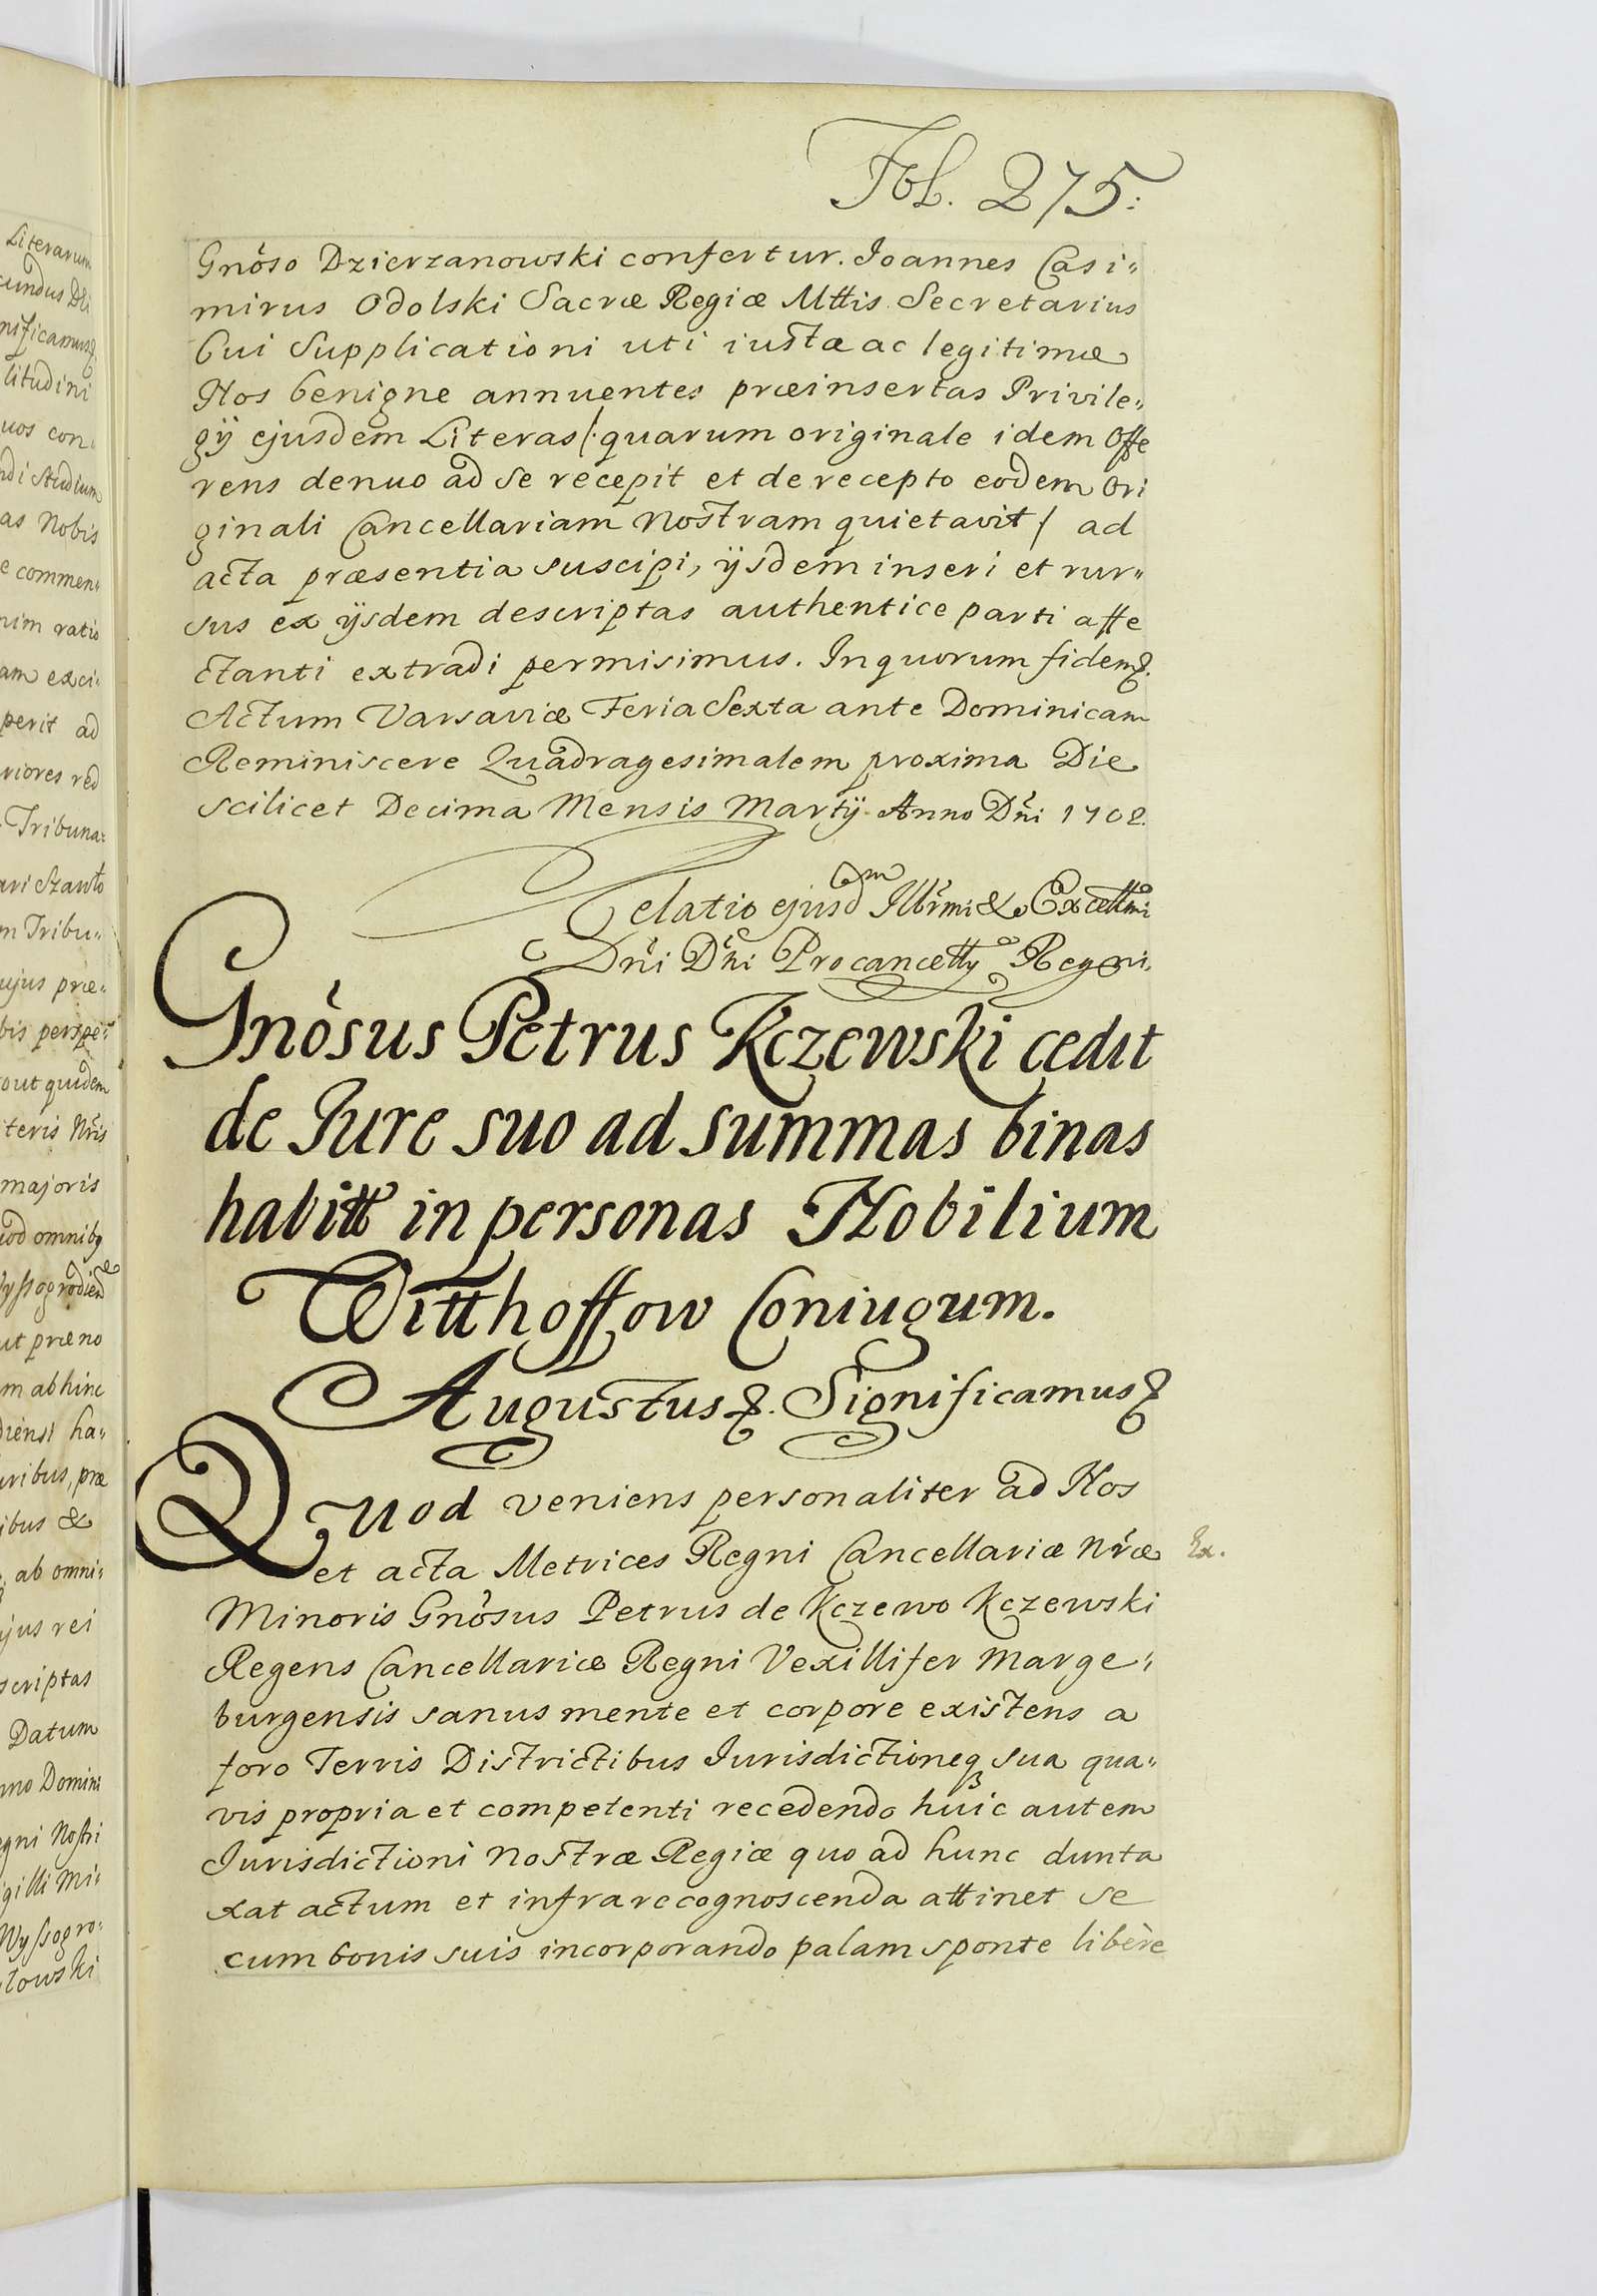 Fol. 275:
Gnoso Dzierzanowski confertur. Joannes Casi„
mirus Odolski Sacræ Regiæ Mttis Secretarius
Cui Supplicationi uti iustæ ac legitimæ
Nos benigne annuentes præinsertas Privile„
gÿ ejusdem Literas /: quarum originale idem Offe
rens denuo ad se recepit et de recepto eodem Ori
ginali Cancellariam nostram quietavit / ad
acta præsentia suscipi, ÿsdem inseri et rur„
sus ex ÿsdem descriptas authentice parti affe
ctanti extradi permisimus. In quorum fidem &.
Actum Varsaviæ Feria Sexta ante Dominicam
Reminiscere Quadragesimalem proxima Die
scilicet Decima Mensis Martÿ Anno Dni 1702.
Relatio ejusdm Illrmi & Excellmi
Dni Dni Procancellÿ Regni.
Gnosus Petrus Kczewski cedit
de Jure suo ad summas binas
habitt in personas Nobilium
Witthoffow Coniugum.
Augustus &. Significamus &
Quod veniens personaliter ad Nos
et acta Metrices Regni Cancellariæ Nræ
Ex.
Minoris Gnosus Petrus de Kczewo Kczewski
Regens Cancellariæ Regni Vexillifer Marge„
burgensis sanus mente et corpore existens a
foro Terris Districtibus Jurisdictioneq sua qua„
vis propria et competenti recedendo huic autem
Jurisdictioni nostræ Regiæ quo ad hunc dunta
xat actum et infra recognoscenda attinet se
cum bonis suis incorporando palam sponte libère
Literarum
cundus Dei
nificamus &
litudini
uos con„
ndi studium
as Nobis
e commen„
nim ratio
am exci„
perit ad
riores red
Tribuna„
m Tribu„
ujus præ„
bis perspe„
out quidem
teris Nris
majoris
uod omniby
ut præno
m abhinc
diensi ha„
uribus, præ
ibus &
ab omni„
ujus rei
scriptas
Datum
nno Domini
egni Nostri
igilli Mi„
Wyssogro„
towski